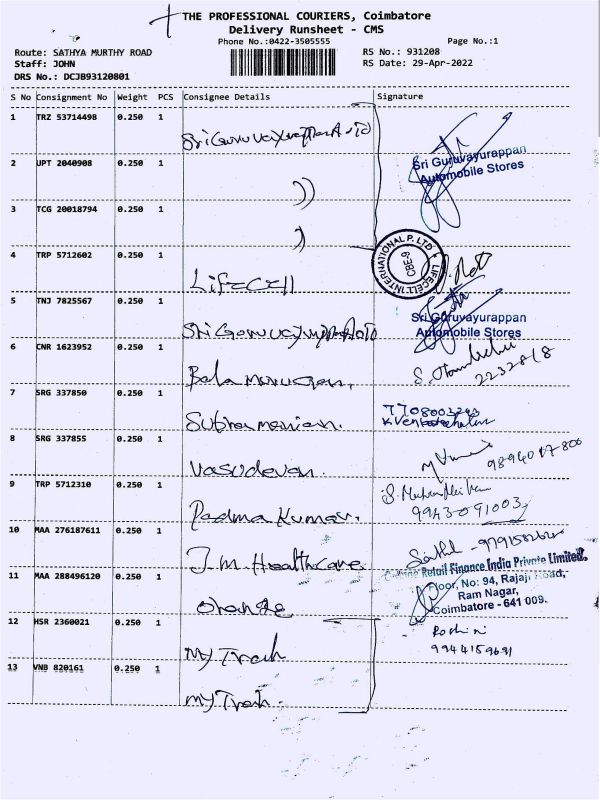 THE PROFESSIONAL COURIERS, Coimbatore
Delivery Runsheet - CMS
Phone No.:0422-3505555 Page No.:1
Route: SATHYA MURTHY ROAD RS No.: 931208
Staff: JOHN RS Date: 29-Apr-2022
DRS No.: DCJB93120801
S No Consignment No Weight PCS Consignee Details Signature
1 TRZ 53714498 0.250 1
Sri Guruvayurappan
Automobile Stores
2 UPT 2040908 0.250 1
3 TCG 20018794 0.250 1
4 TRP 5712602 0.250 1 Lifecell
LIFECELL INTERNATIONAL P. LTD
CBE-9
5 TNJ 7825567 0.250 1
Sri Guruvayurappan
Automobile Stores
6 CNR 1623952 0.250 1 Bala Murugan.
2232818
7 SRG 337850 0.250 1 Subramanian.
8 SRG 337855 0.250 1 Vasudevan.
9 TRP 5712310 0.250 1 Padma Kumar.
9943091003
10 MAA 276187611 0.250 1 J.M. Healthcare
11 MAA 288496120 0.250 1 Orange
Retail Finance India Private Limited,
Floor, No: 94, Rajaji Road,
Ram Nagar,
Coimbatore - 641 009.
12 HSR 2360021 0.250 1 My Trah
Roshini
9944159691
13 VNB 820161 0.250 1 My Trah.